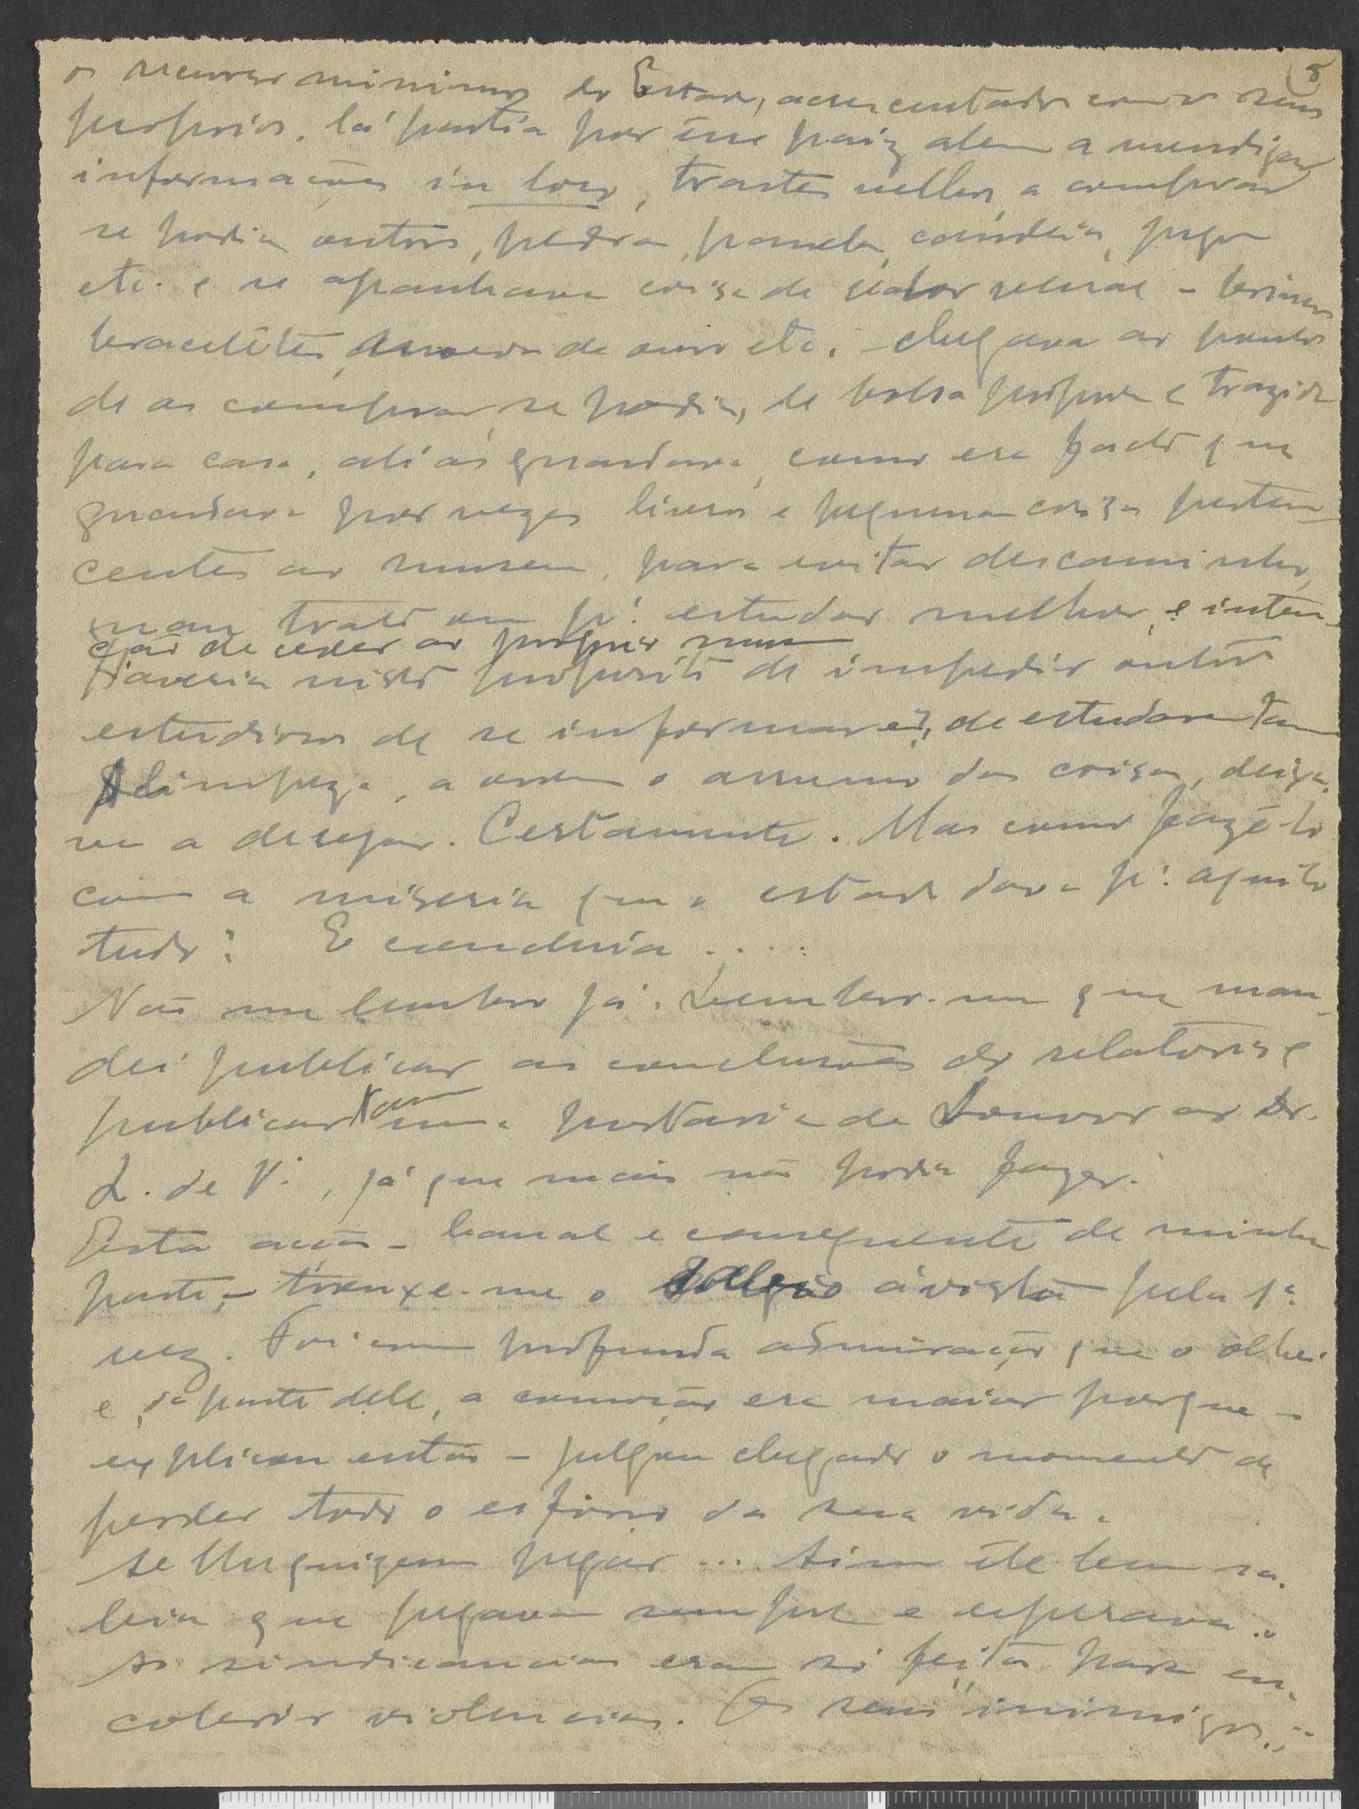 8
os recursos minimos do Estado, acrescentados com os seus
proprios. lá partia por esse paiz alem a mendigar
informações in loco, trastes velhos, a comprar
se podia outros, pedra, panela, candeia, jugo
etc. e se apanhava coisa de valor sexual - brincos
braceletes, moeda de ouro etc. - chegava ao ponto
de as comprar, se podia, de bolsa propria e trazida
para casa, ali as guardava, como era facto que
guardava por vezes livros e pequenas coisas perten-
centes ao museu, para evitar descaminhos,
mau trato ou p.ª estudar melhor, e inten-
ção de ceder ao proprio museu
Haveria nisto proposito de impedir outros
estudiosos de se informarem, de estudarem tam
A limpeza, a ordem o arrumo das coisas, deixa-
va a desejar. Certamente. Mas como fazê-lo
com a miseria que o estado dava p.ª aquilo
tudo? E concluia .....
Não me lembro já. Lembro-me que man-
dei publicar as conclusões do relatorio e
publicar tam uma portaria de Louvor ao Dr.
L. de V., já que mais não podia fazer.
Esta acção - banal e consequente de minha
parte, - trouxe-me o à vista pela 1ª
vez. Foi com profunda admiração que o olhei
e, da parte dele, a comoção era maior porque -
explicou então - julgou chegado o momento de
perder todo o esforço da sua vida.
Se lhe quizeram pegar ... Sim êle bem sa-
bia que pegavam sempre e esperava..
As sindicancias eram só feitas para en-
cobrir violencias. Os seus "inimigos..."